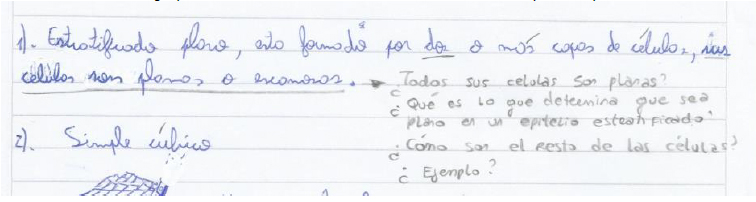 1). Estratificado plano, esto formado por dos o más capas de células, sus
células son planas o escamosas. → ¿Todas sus celulas son planas?
¿Qué es lo que determina que sea
plano en un epitelio estratificado?
¿Cómo son el resto de las células?
¿Ejemplo?
2). Simple cúbico